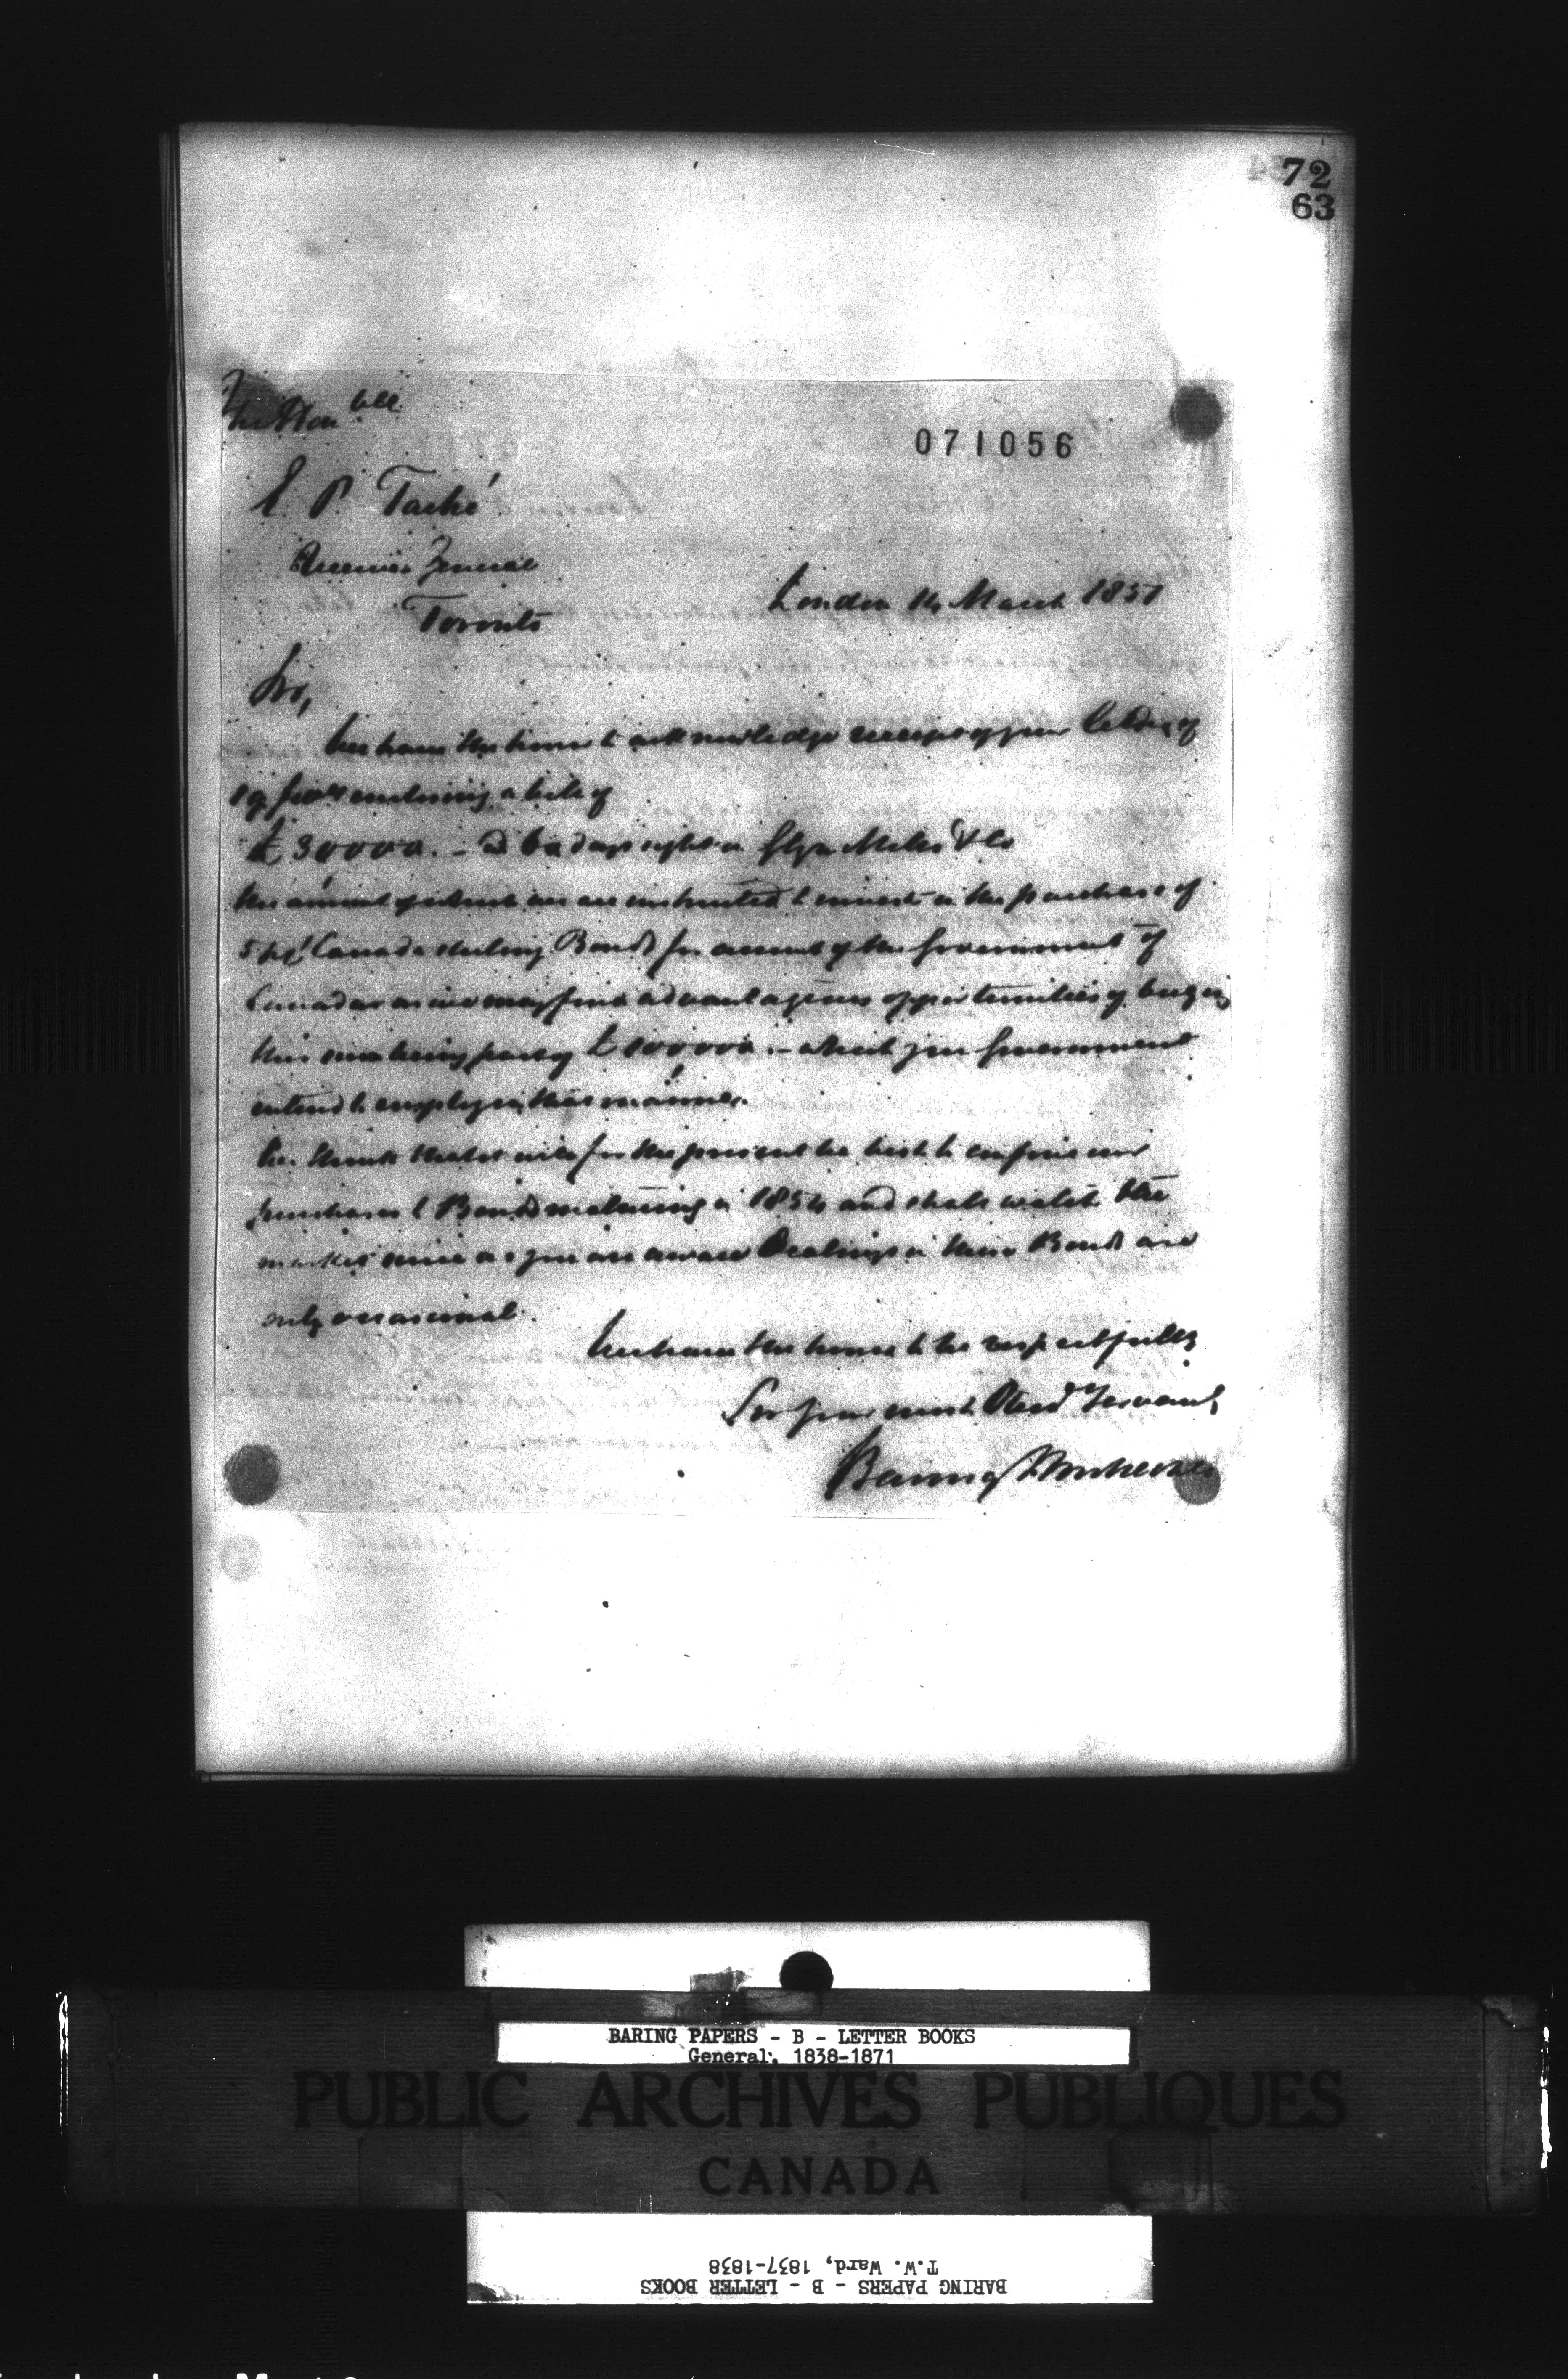 72
63
The Hon ble
071056
E. P. Taché
Receiver General
London 14 March 1851
Toronto
Sir,
We have the honor to acknowledge receipt of your letter of
19 enclosing a bill of
£30000.- @ 60 days sight on Glyn Mills & Co
the amount of which we are instructed to invest in the purchase of
5 pct Canada Sterling Bonds for account of the Government of
Canada as we may find advantageous opportunities of buying
this sum being part of £100000.- which your Government
intend to employ in this manner.
We think that it will for the present be best to confine our
purchases to Bonds maturing in 1854 and shall watch the
market since as you are aware Dealings in these Bonds are
only occasional.
We have the honor to be respectfully
Sir your most Obed Servants
Baring Brothers & Co
BARING PAPERS - B - LETTER BOOKS
General, 1838-1871
PUBLIC ARCHIVES PUBLIQUES
CANADA
BARING PAPERS - B - LETTER BOOKS
T.W. Ward, 1837-1838